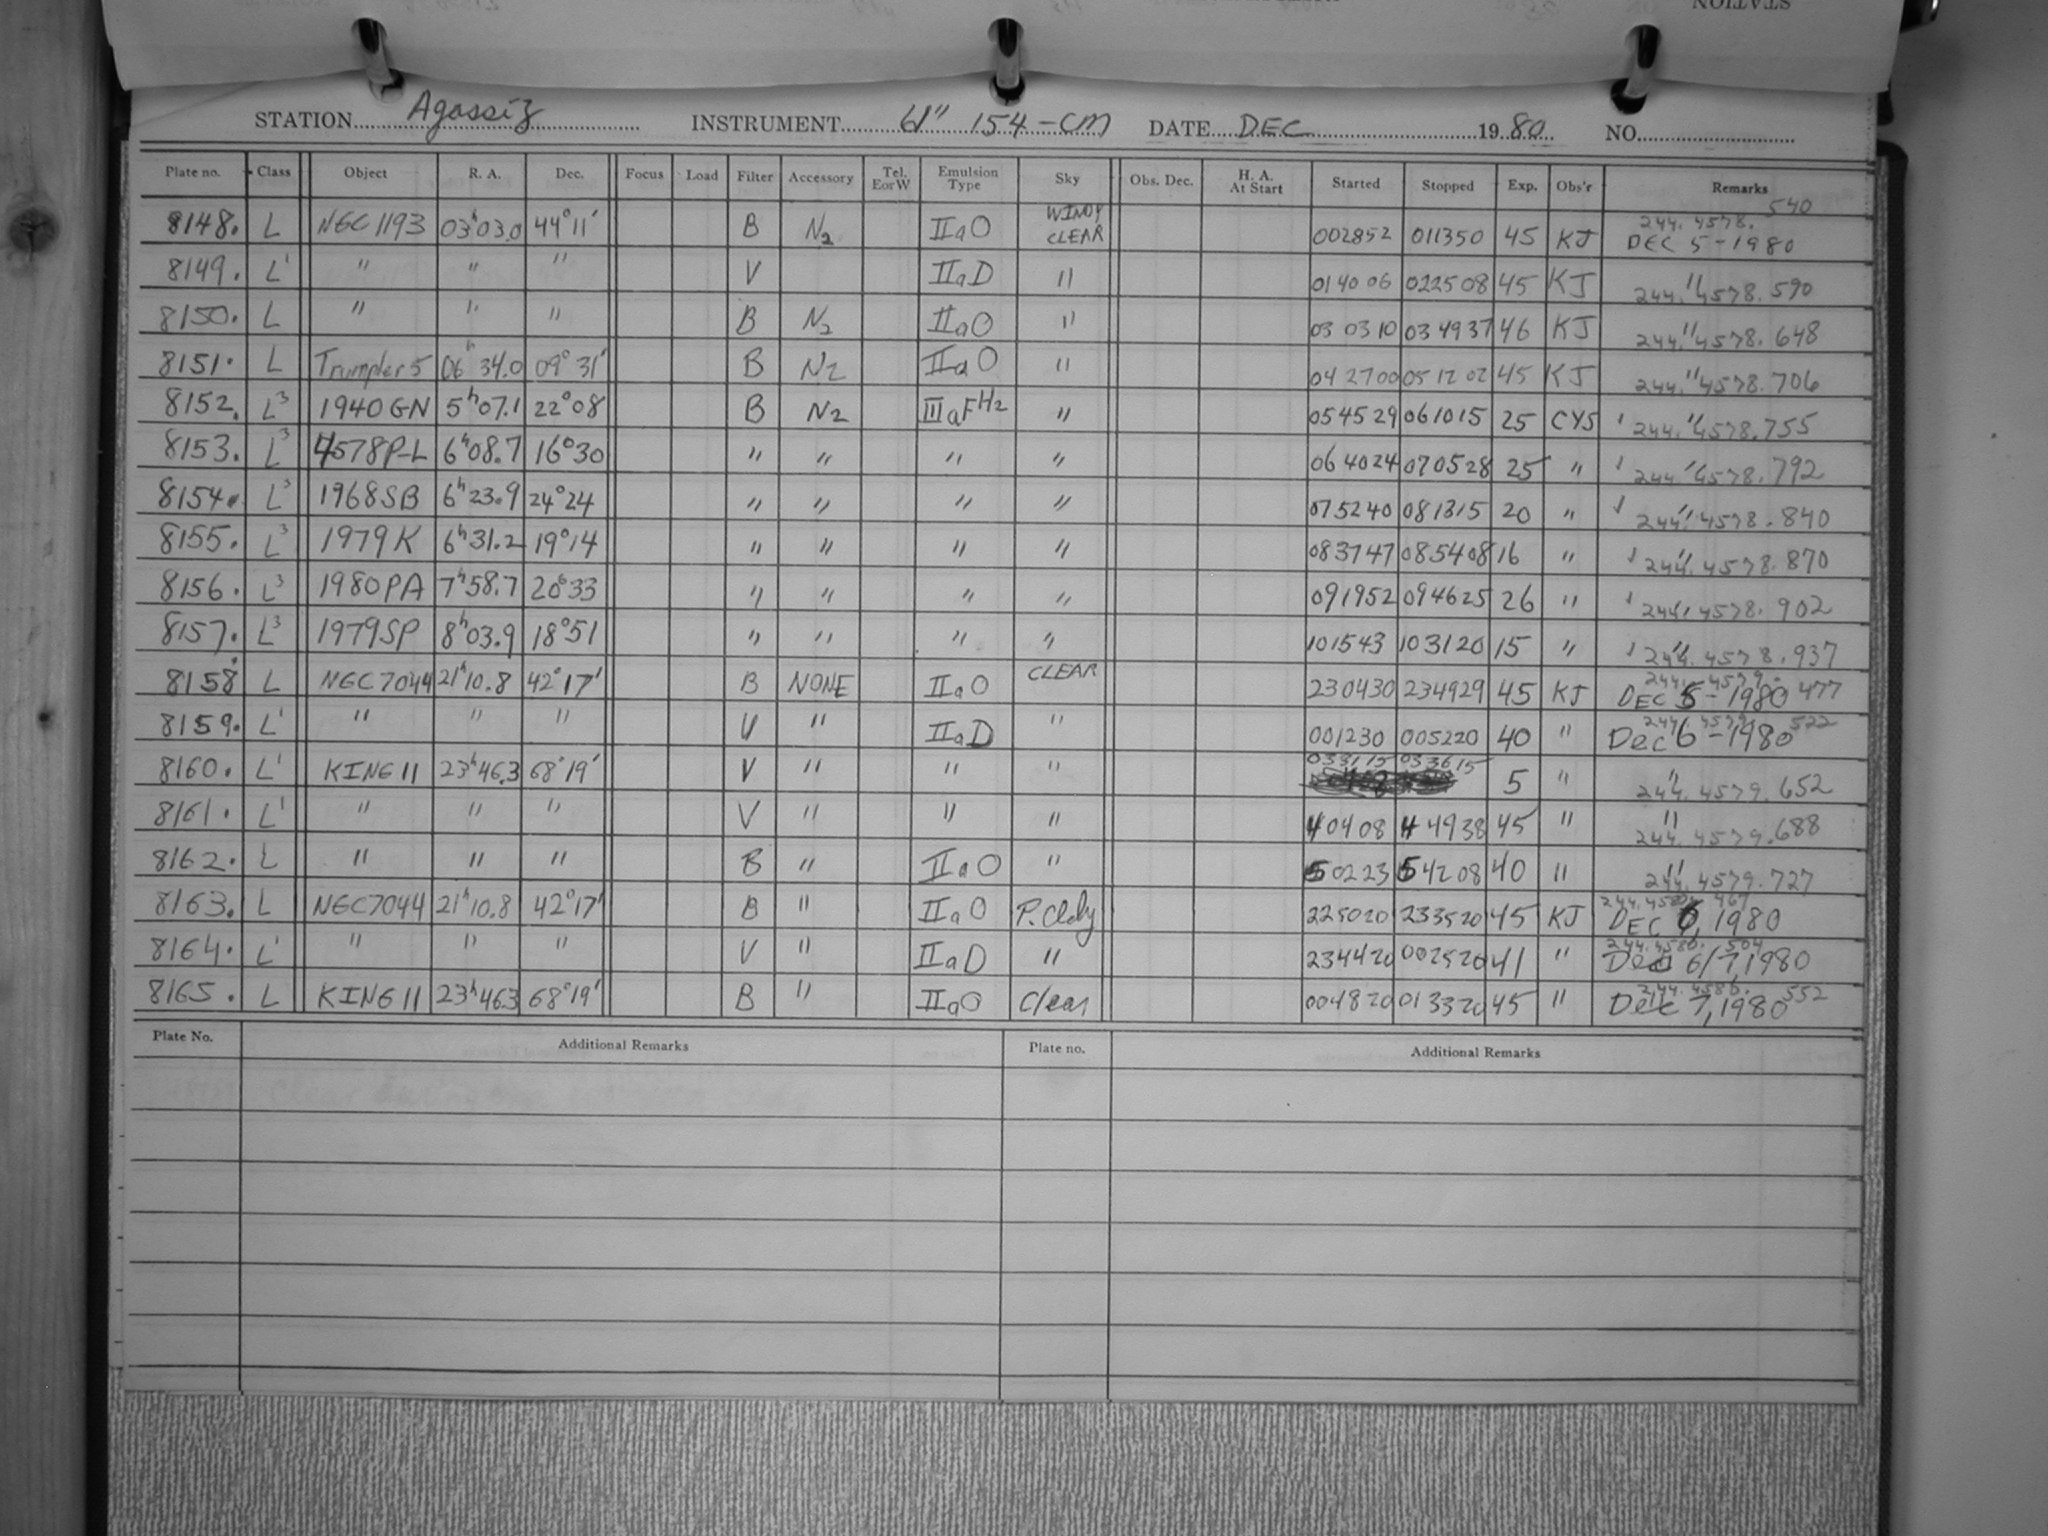 STATION
STATION Agassiz INSTRUMENT 61" 154-CM DATE DEC 1980 NO.
Plate no. Class Object R. A. Dec. Focus Load Filter Accessory Tel. E or W Emulsion Type Sky Obs. Dec. H. A. At Start Started Stopped Exp. Obs'r Remarks
8148. L NGC 1193 03h03.0 44°11' B N2 IIaO WINDY CLEAR 002852 011350 45 KJ 244.4578.540 DEC 5-1980
8149. L' " " " V IIaD " 014006 022508 45 KJ " 244.4578.590
8150. L " " " B N2 IIaO " 030310 034937 46 KJ " 244.4578.648
8151. L Trumpler 5 06h34.0 09°31' B N2 IIaO " 042700 051202 45 KJ " 244.4578.706
8152. L3 1940GN 5h07.1 22°08 B N2 IIIaF H2 " 054529 061015 25 CYS " 244.4578.755
8153. L3 4578P-L 6h08.7 16°30 " " " " 064024 070528 25 " " 244.4578.792
8154. L3 1968SB 6h23.9 24°24 " " " " 075240 081315 20 " " 244.4578.840
8155. L3 1979K 6h31.2 19°14 " " " " 083747 085408 16 " " 244.4578.870
8156. L3 1980PA 7h58.7 20°33 " " " " 091952 094625 26 " " 244.4578.902
8157. L3 1979SP 8h03.9 18°51 " " " " 101543 103120 15 " " 244.4578.937
8158 L NGC7044 21h10.8 42°17' B NONE IIaO CLEAR 230430 234929 45 KJ 244.4579.477 DEC 5-1980
8159. L' " " " V " IIaD " 001230 005220 40 " 244.4579.522 Dec 6-1980
8160. L' KING 11 23h46.3 68°19' V " " " 033115 033615 5 " " 244.4579.652
8161. L' " " " V " " " 40408 44938 45 " " 244.4579.688
8162. L " " " B " IIaO " 50223 54208 40 " " 244.4579.727
8163. L NGC7044 21h10.8 42°17' B " IIaO P. Cldy 225020 233520 45 KJ 244.4580.467 DEC 6, 1980
8164. L' " " " V " IIaD " 234420 002520 41 " 244.4580.504 Dec 6/7, 1980
8165. L KING 11 23h46.3 68°19' B " IIaO Clear 004820 013320 45 " 244.4580.552 Dec 7, 1980
Plate No. Additional Remarks Plate no. Additional Remarks